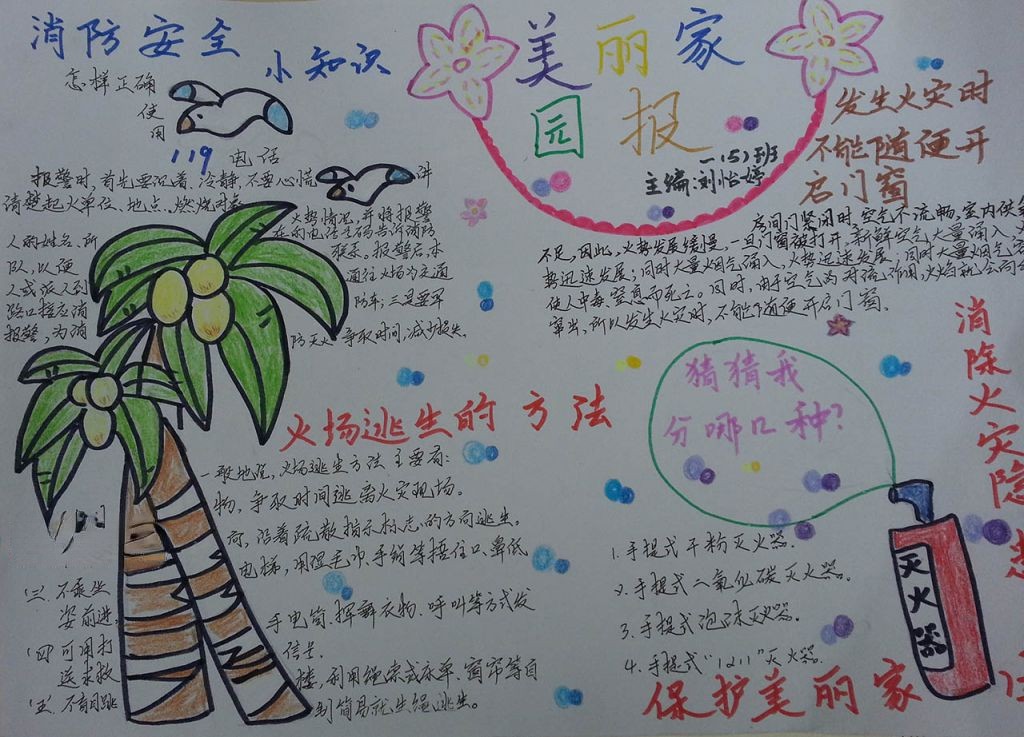 消防安全
小知识
怎样正确
使用
119 电话
报警时,首先要沉着、冷静,不要心慌
讲
清楚起火单位、地点、燃烧对象
火势情况,并将报警
人的姓名、所
在的电话号码告诉消防
队,以便
联系,报警后,本
人或派人到
通往火场的交通
路口接应消
防车;三是要军
报警,为消
防灭火争取时间,减少损失。
美丽家
园报
一(5)班
主编:刘怡婷
发生火灾时
不能随便开
启门窗
房间门紧闭时,空气不流畅,室内供氧
不足,因此,火势发展缓慢,一旦门窗被打开,新鲜空气大量涌入,火
势迅速发展;同时大量烟气涌入,火势迅速发展;同时大量烟气
使人中毒、窒息而死亡。同时,由于空气的对流作用,火焰就会向
窜出,所以发生火灾时,不能随便开启门窗。
火场逃生的方法
一般地说,火场逃生方法主要有:
物,争取时间逃离火灾现场。
沿着疏散指示标志的方向逃生。
电梯,用湿毛巾、手绢等捂住口、鼻低
(三)不乘坐
姿前进
手电筒、挥舞衣物、呼叫等方式发
(四)可用打
信号.
送求救
楼,利用绳索或床单、窗帘等自
(五)不盲目跳
制简易救生绳逃生。
猜猜我
分哪几种?
1.手提式干粉灭火器.
2.手提式二氧化碳灭火器。
3.手提式泡沫灭火器.
4.手提式"1211"灭火器.
灭火器
消除火灾隐患
保护美丽家